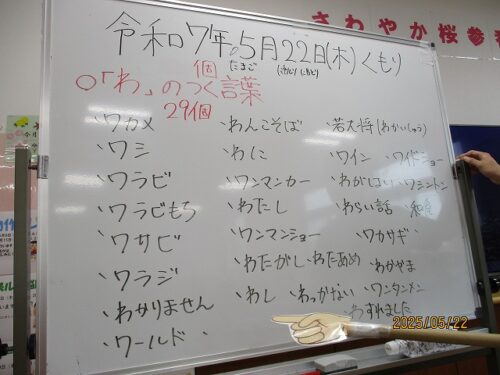 さわやか桜参
令和7年5月22日(木)くもり
たまご
個
○「わ」のつく言葉
29個
・ワカメ
・ワシ
・ワラビ
・ワラビもち
・ワサビ
・ワラジ
・わかりません
・ワールド
・わんこそば
・わに
・ワンマンカー
・わたし
・ワンマンショー
・わたがし ・わたあめ
・わし ・わっかない
・若大将(わかいしゅう)
・ワイン ・ワイドショー
・わがはい ・ワシントン
・わらい話
・ワカサギ
・わかやま
・ワンタンメン
・わすれました
2025/05/22